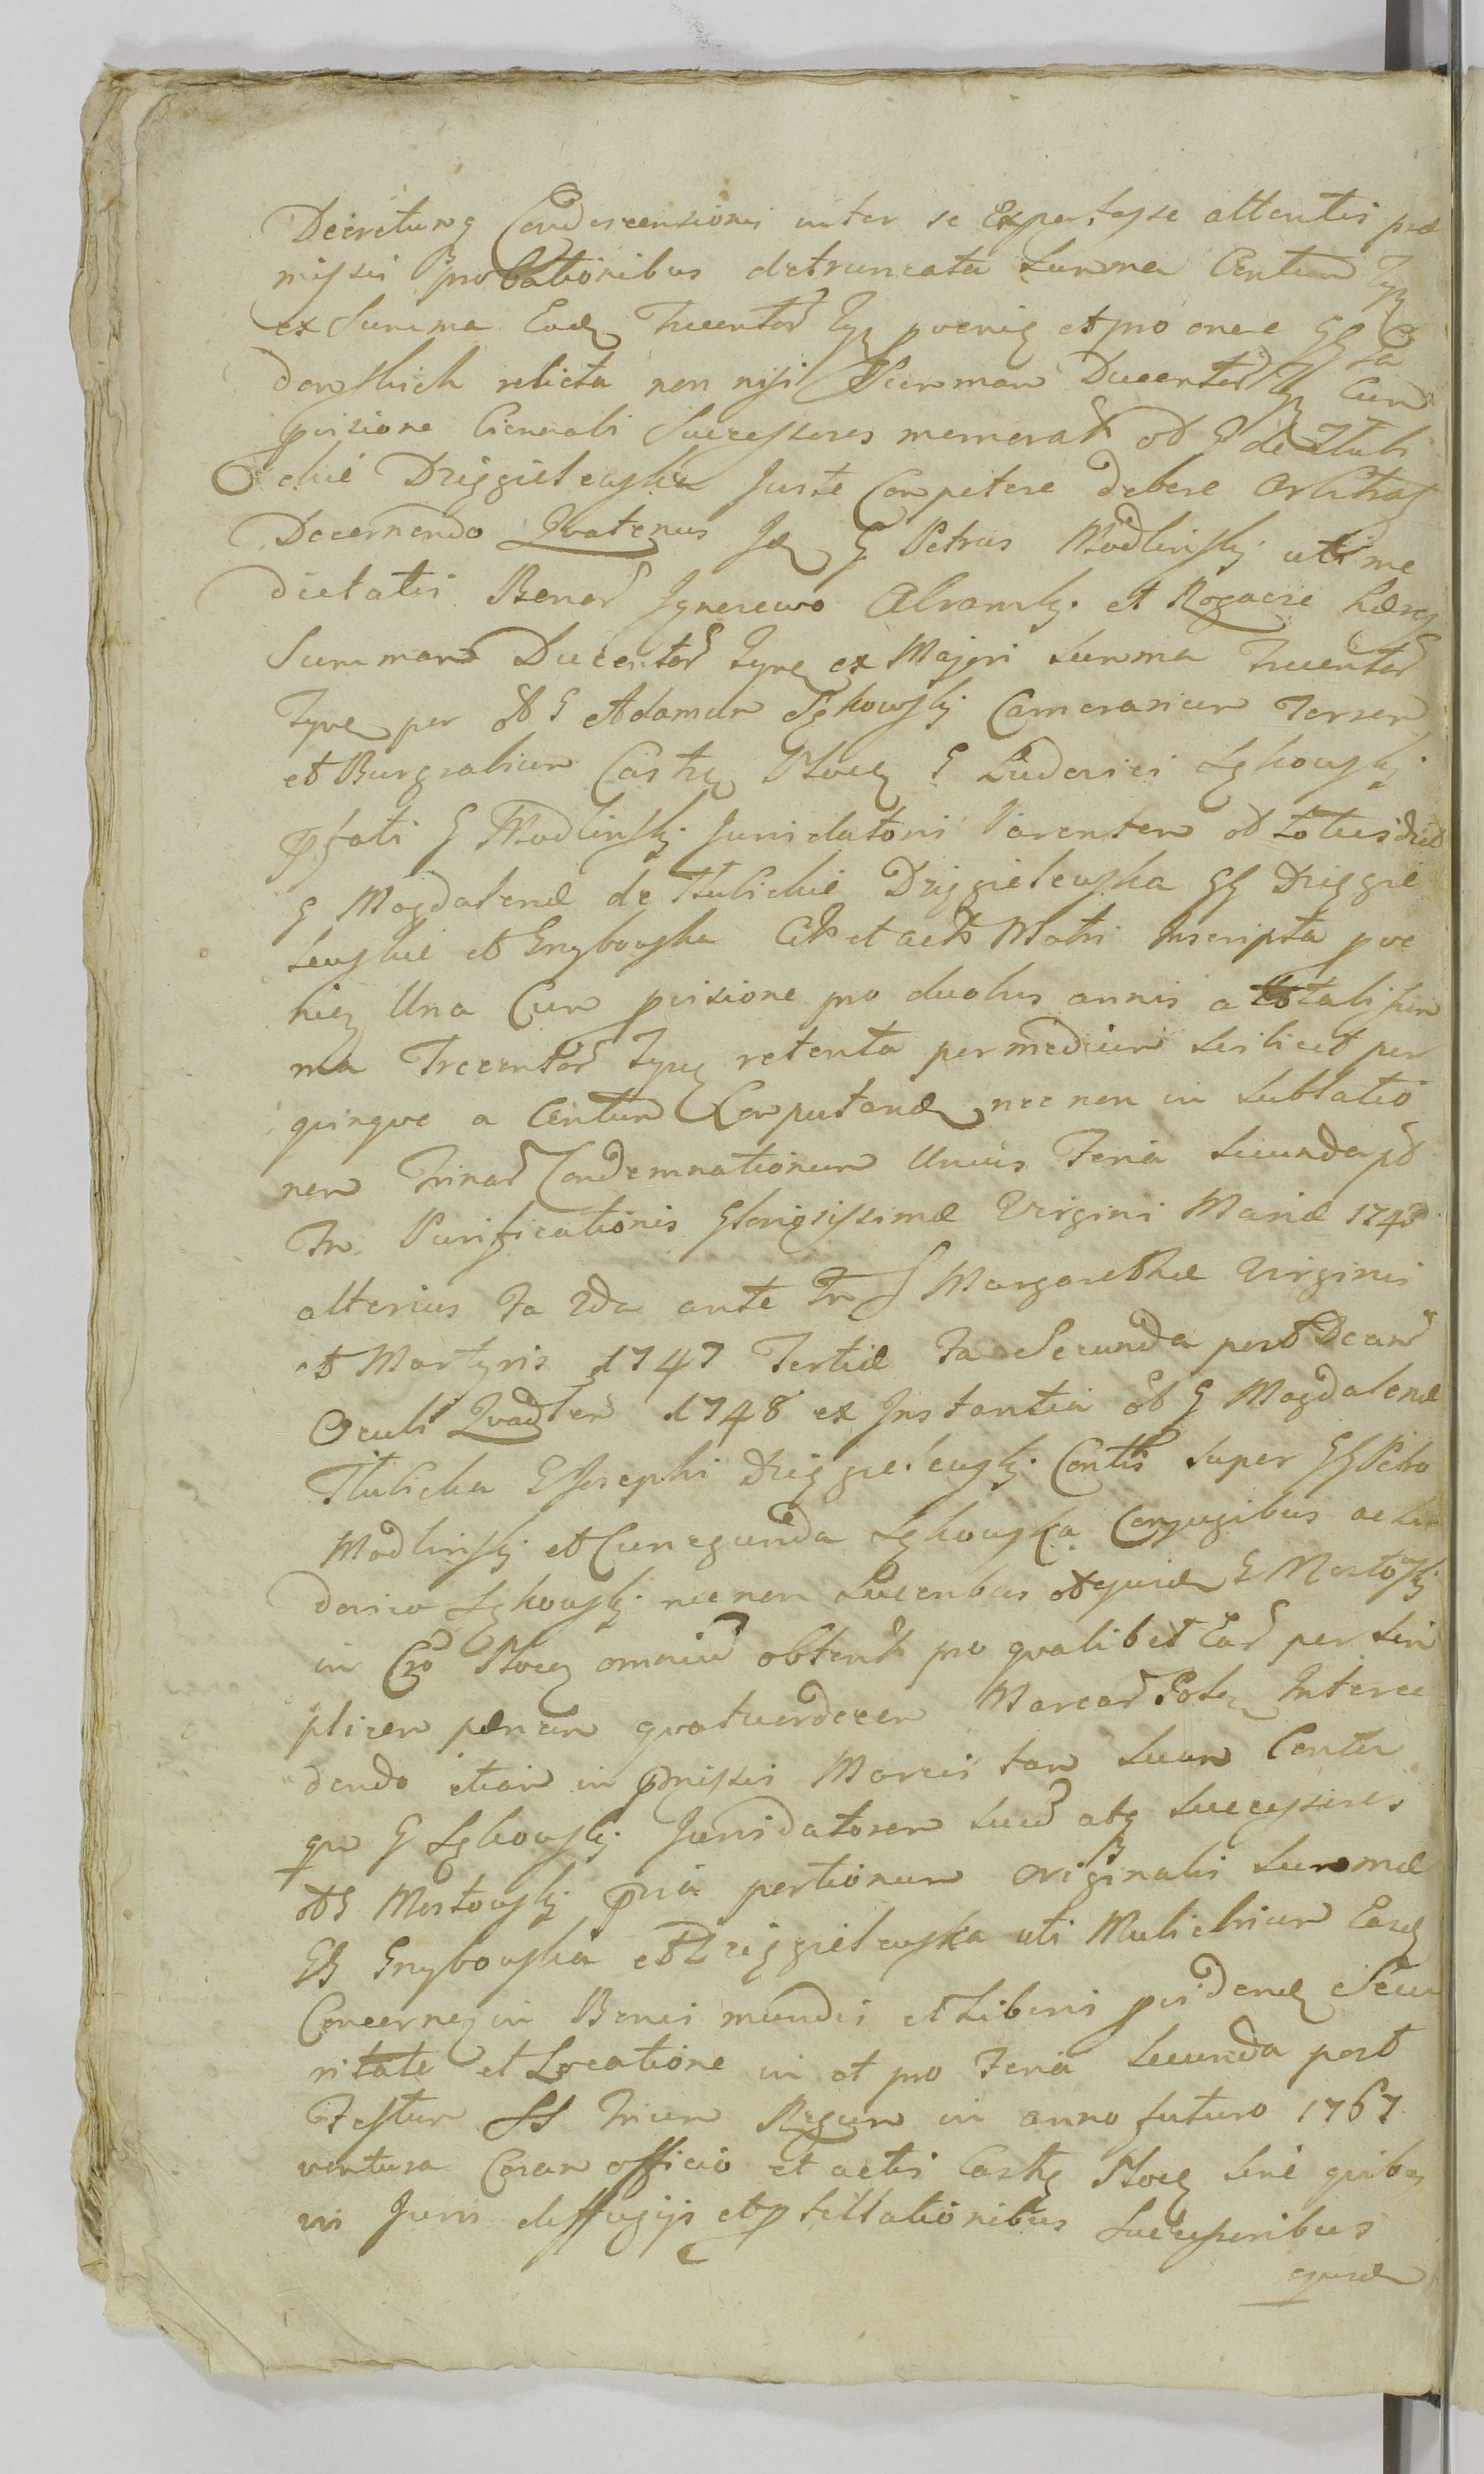 Decretumq Condescensionis inter se Expertesse attentis præ
missis probationibus detruncata Summa Centum Tyz
ex Summa Eadz Trecentor Tyz proveniz et pro onere GG Sa
dowskich relicta non nisi Summam Ducentor Tyz Cum
provisione Generali Successores memorat ob G de Tłubi
ckie Dzięgielewska Juste Competere debere Arbitraz
Decernendo Quatenus Jdz G Petrus Modlinski uti me
dietatis Bonor Ignacewo Abramki et Rogacze Hæres
Summam Ducentor Tynf ex Majori Summa Trecentor
Tynf per olt G Adamum Łękowski Camerarium Terren
et Burgrabium Castr Plocz G Ludovici Łękowski
pfati G Modlinski Jurisdatoris Parentem olt totius
G Magdalenæ de Tłubickie Dzięgielewska GG Dzięgie
lewskie et Grzybowska Cit et act Matri Inscripta prove
niez Una Cum provisione pro duobus annis a tali sum
ma Trecentor Tynf retenta per medium scilicet per
quinque a Centum Computandz nec non in sublatio
nem Trinar Condemnationum Unius Feria Secunda pt
Fm Purificationis Gloriosissimæ Virginis Mariæ 1743
alterius Fa 2da ante Fm S Margarethæ Virginis
et Martyris 1747 Tertiæ Fa Secunda post Dcam
Oculi Quadlem 1748 ex Instantia olt G Magdalenæ
Tłubicka G Josephi Dzięgielewski Conthr super GG Petro
Modlinski et Cunegunda Łękowska Conjugibus ac Lu
dovico Łękowski nec non Succribus olt ejusdem G Mostowski
in Cro Plocz omnium obtent pro qualibet Ear per sim
plicem pænam quatuordecem Marcar Polz Interce
dendo etiam in præmissis Marcis tam suum Conter
qm G Łękowski Jurisdatorem suum atq Successores
olt G Mostowski pria portionum originalis Summæ
GG Grzybowska et Dzięgielewska uti Muliebrium Easdz
Concernez in Bonis mundis et Liberis pvidendz Secu
ritate et Locatione in et pro Feria Secunda post
Festum SS Trium Regum in anno futuro 1767
ventura Coram officio et actis Castr Plocz sine quibus
vis Juris diffugijs et pstellationibus Successoribus
ejusdem